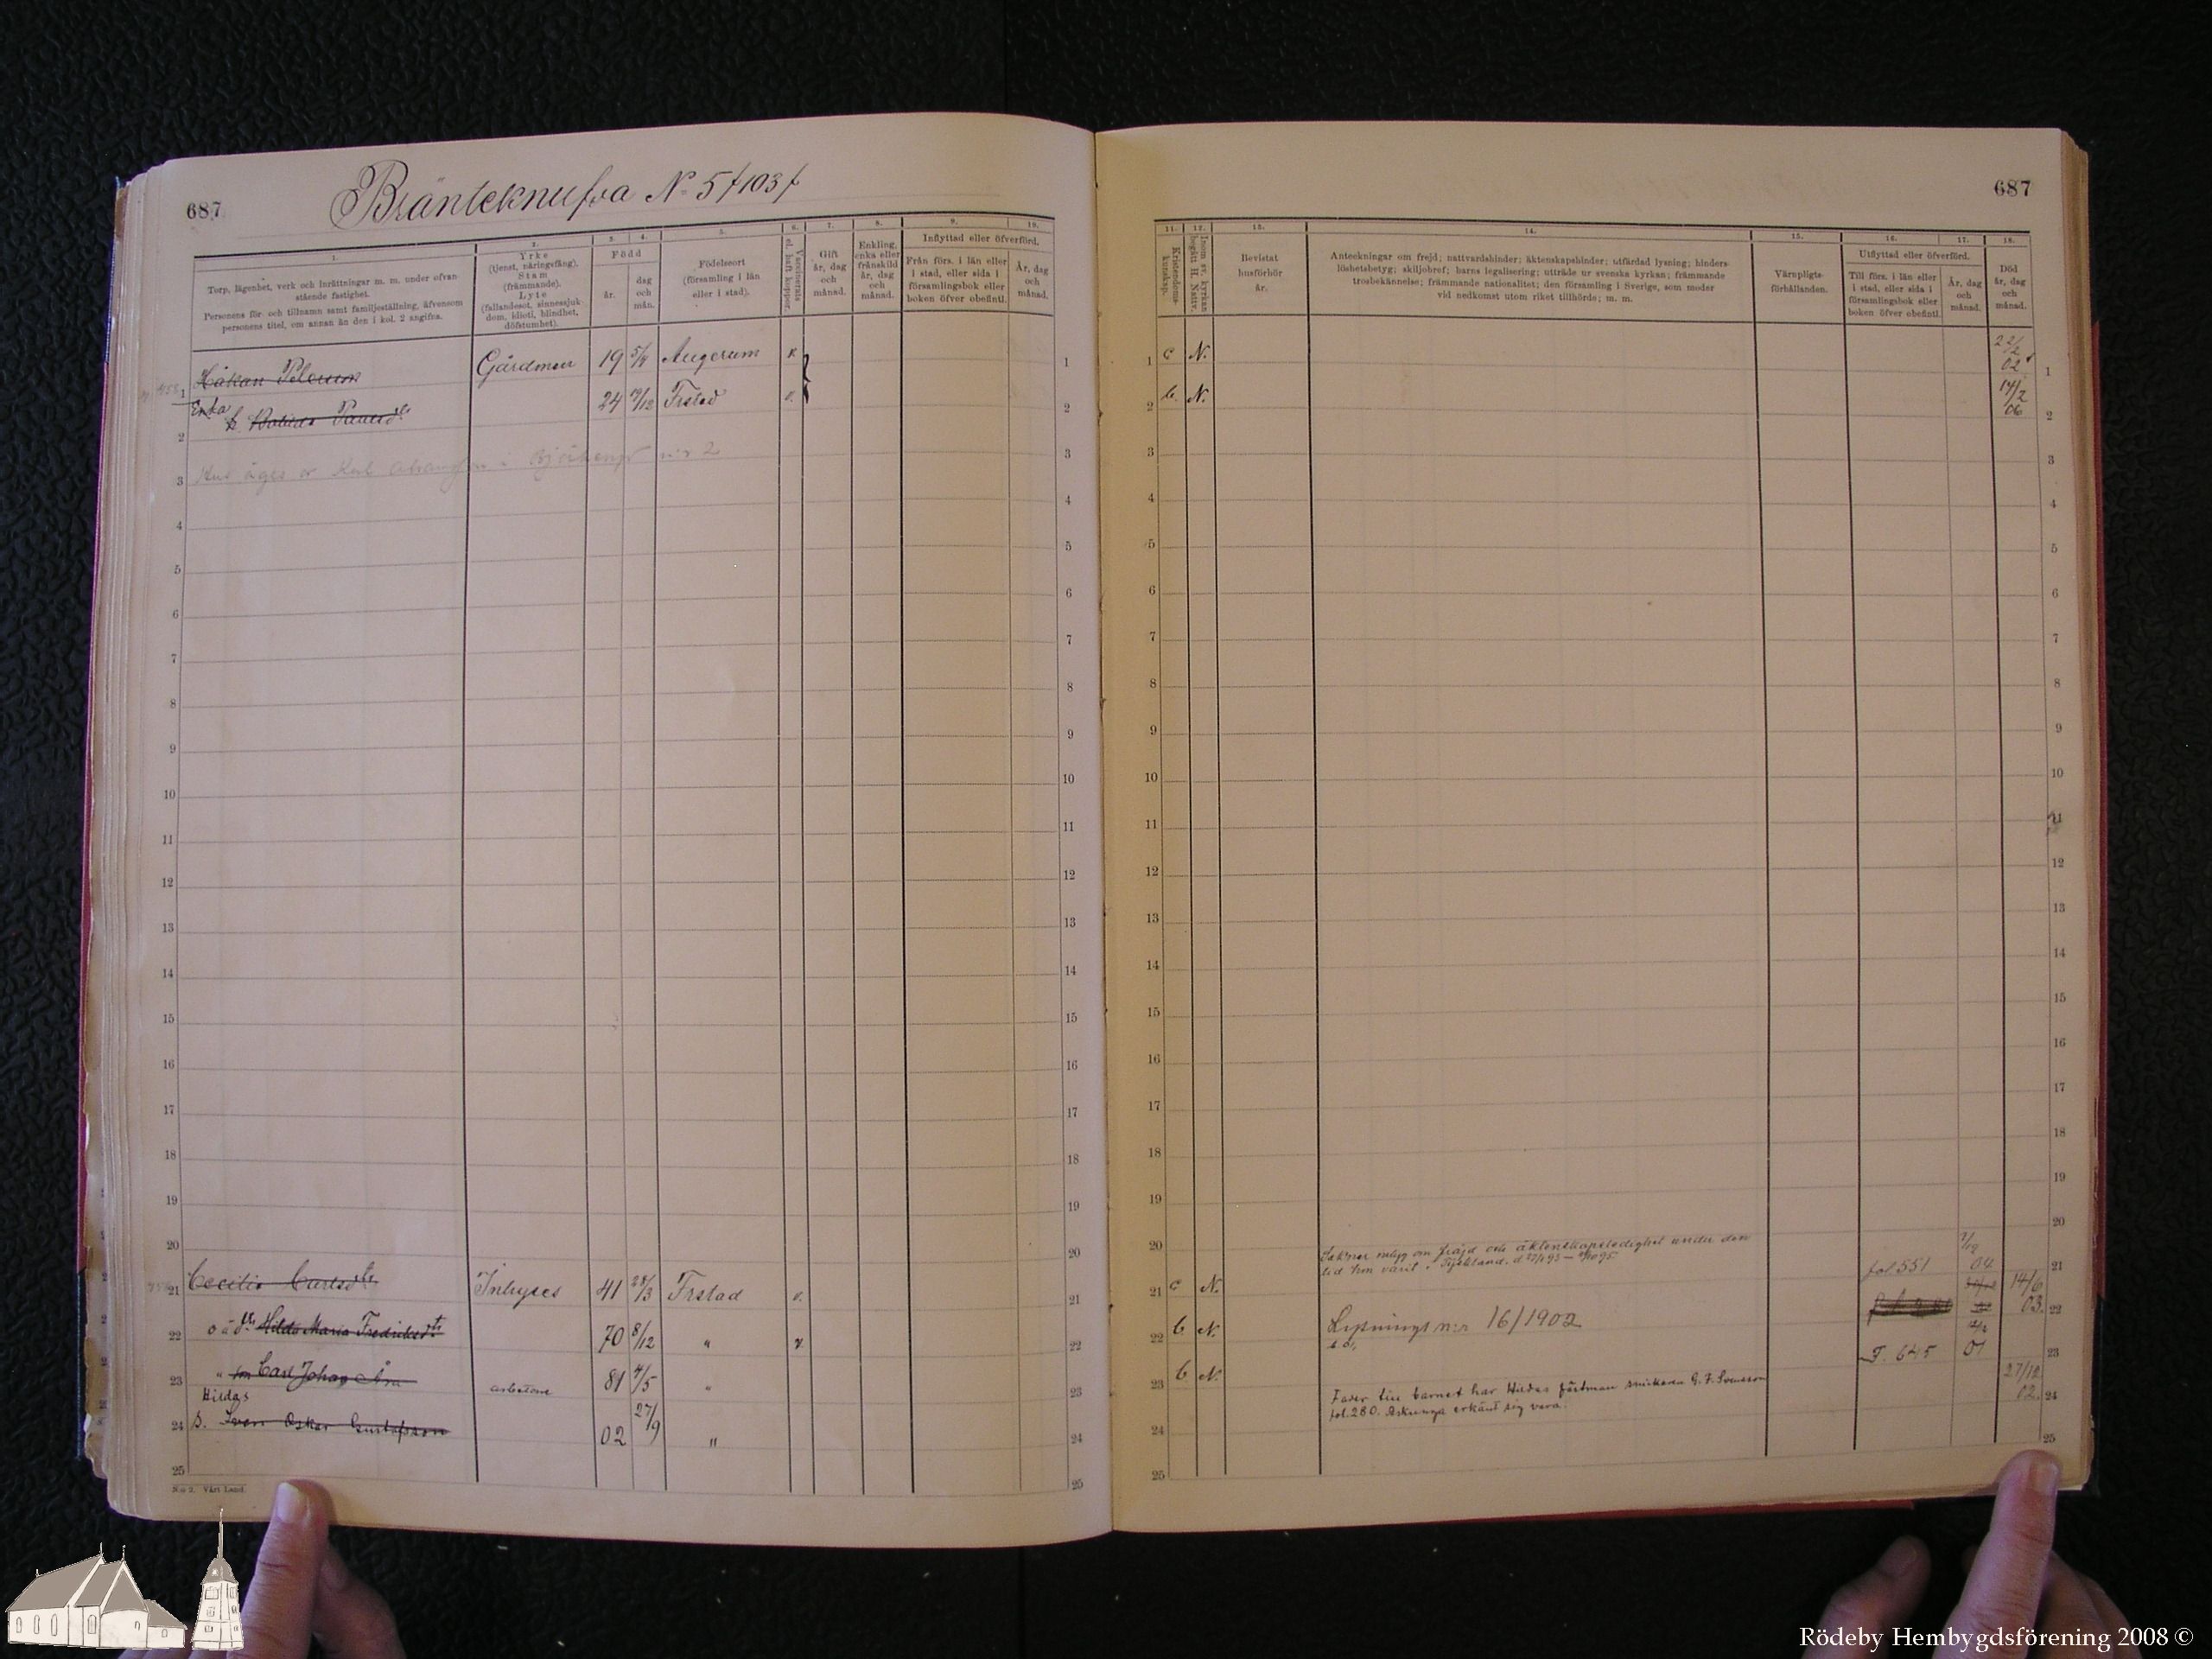 687
Bränteknufva No 5 f 103 f
1.
2.
3.
4.
5.
6.
7.
8.
9.
10.
Torp, lägenhet, verk och inrättningar m. m. under ofvan
stående fastighet.
Personens för- och tillnamn samt familjeställning, äfvensom
personens titel, om annan än den i kol. 2 angifna.
Yrke
(tjenst, näringsfång).
Stam
(främmande).
Lyte
(fallandesot, sinnessjuk-
dom, idioti, blindhet,
döfstumhet).
Född
år.
dag
och
mån.
Födelseort
(församling i län
eller i stad).
Vaccinerats
el. haft koppor.
Gift
år, dag
och
månad.
Enkling,
enka eller
frånskild
år, dag
och
månad.
Inflyttad eller öfverförd.
Från förs. i län eller
i stad, eller sida i
församlingsbok eller
boken öfver obefintl.
År, dag
och
månad.
Håkan Petersson Gårdman 19 5/4 Augerum K
Enka h. Paulsdtr 24 19/12 Frstad v.
Hus äges av Karl i n:r 2
Cecilia Carlsdtr Inhyses 41 28/3 Frstad v.
o ä dtr Hilda Maria Fredriksdtr 70 8/12 " v
" son Carl Johan arbetare 81 4/5 "
Hildas
b. Sven Oskar Gustafsson 02 27/9 "
No 2. Vårt Land.
687
11.
12.
13.
14.
15.
16.
17.
18.
Kristendoms-
kunskap.
Inom sv. kyrkan
begått H. Nattv.
Bevistat
husförhör
år.
Anteckningar om frejd; nattvardshinder; äktenskapshinder; utfärdad lysning; hinders-
löshetsbetyg; skiljobref; barns legalisering; utträde ur svenska kyrkan; främmande
trosbekännelse; främmande nationalitet; den församling i Sverige, som moder
vid nedkomst utom riket tillhörde; m. m.
Värnpligts-
förhållanden.
Utflyttad eller öfverförd.
Till förs. i län eller
i stad, eller sida i
församlingsbok eller
boken öfver obefintl.
År, dag
och
månad.
Död
år, dag
och
månad.
c N. 22/2 02
b. N. 14/2 06
Saknar intyg om fräjd och äktenskapsledighet under den
tid hon varit i Tyskland. fol 551 04
c N. 14/6 03.
b N. Lysnings n:r 16/1902
b N. F. 645 01
Fader till barnet har Hildas fästman snickaren G. F. Svensson
fol. 280. Askunga erkänt sig vara. 27/12 02.
Rödeby Hembygdsförening 2008 ©